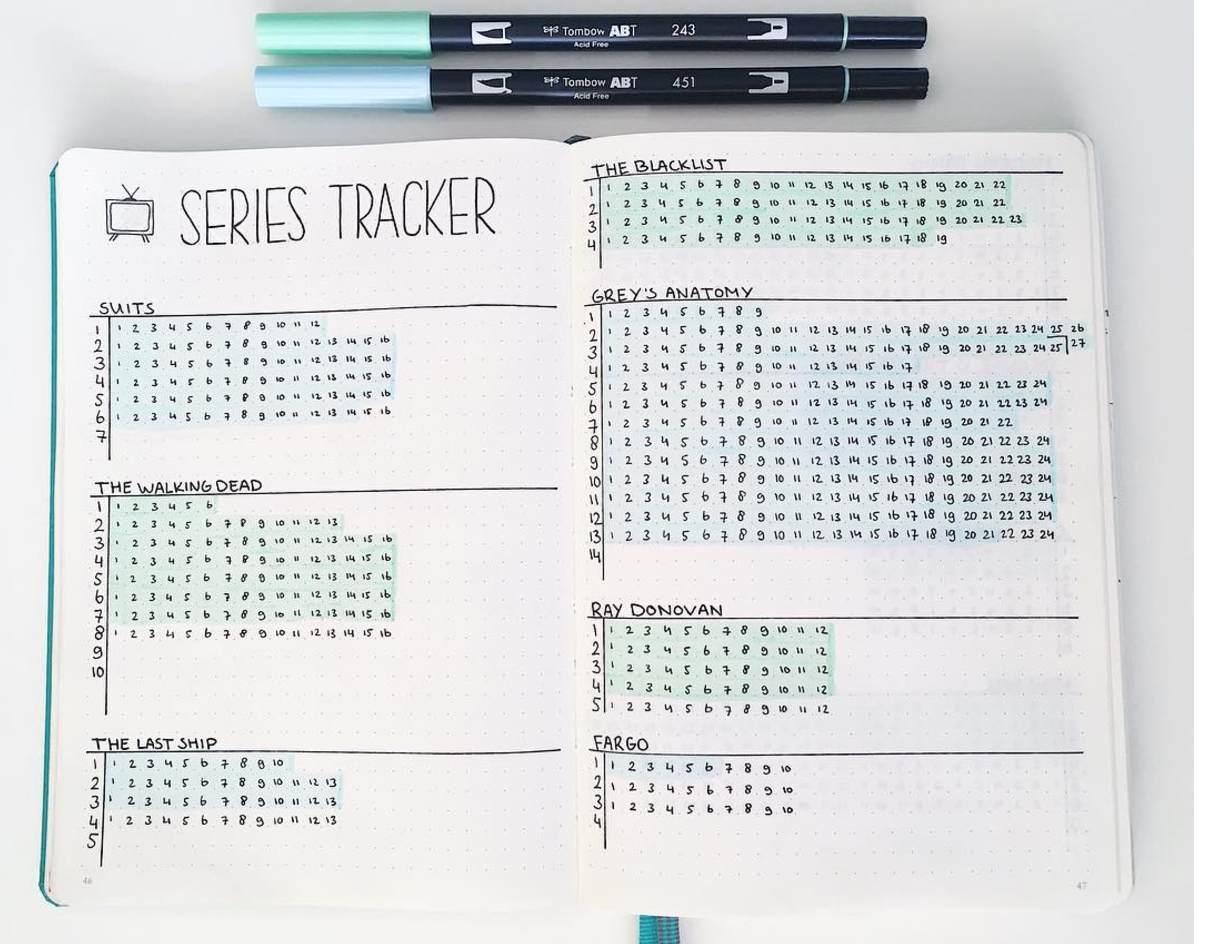 Tombow ABT 243
Acid Free
Tombow ABT 451
Acid Free
SERIES TRACKER
SUITS
1 1 2 3 4 5 6 7 8 9 10 11 12
2 1 2 3 4 5 6 7 8 9 10 11 12 13 14 15 16
3 1 2 3 4 5 6 7 8 9 10 11 12 13 14 15 16
4 1 2 3 4 5 6 7 8 9 10 11 12 13 14 15 16
5 1 2 3 4 5 6 7 8 9 10 11 12 13 14 15 16
6 1 2 3 4 5 6 7 8 9 10 11 12 13 14 15 16
7
THE WALKING DEAD
1 1 2 3 4 5 6
2 1 2 3 4 5 6 7 8 9 10 11 12 13
3 1 2 3 4 5 6 7 8 9 10 11 12 13 14 15 16
4 1 2 3 4 5 6 7 8 9 10 11 12 13 14 15 16
5 1 2 3 4 5 6 7 8 9 10 11 12 13 14 15 16
6 1 2 3 4 5 6 7 8 9 10 11 12 13 14 15 16
7 1 2 3 4 5 6 7 8 9 10 11 12 13 14 15 16
8 1 2 3 4 5 6 7 8 9 10 11 12 13 14 15 16
9
10
THE LAST SHIP
1 1 2 3 4 5 6 7 8 9 10
2 1 2 3 4 5 6 7 8 9 10 11 12 13
3 1 2 3 4 5 6 7 8 9 10 11 12 13
4 1 2 3 4 5 6 7 8 9 10 11 12 13
5
46
THE BLACKLIST
1 1 2 3 4 5 6 7 8 9 10 11 12 13 14 15 16 17 18 19 20 21 22
2 1 2 3 4 5 6 7 8 9 10 11 12 13 14 15 16 17 18 19 20 21 22
3 1 2 3 4 5 6 7 8 9 10 11 12 13 14 15 16 17 18 19 20 21 22 23
4 1 2 3 4 5 6 7 8 9 10 11 12 13 14 15 16 17 18 19
GREY'S ANATOMY
1 1 2 3 4 5 6 7 8 9
2 1 2 3 4 5 6 7 8 9 10 11 12 13 14 15 16 17 18 19 20 21 22 23 24 25 26
27
3 1 2 3 4 5 6 7 8 9 10 11 12 13 14 15 16 17 18 19 20 21 22 23 24 25
4 1 2 3 4 5 6 7 8 9 10 11 12 13 14 15 16 17
5 1 2 3 4 5 6 7 8 9 10 11 12 13 14 15 16 17 18 19 20 21 22 23 24
6 1 2 3 4 5 6 7 8 9 10 11 12 13 14 15 16 17 18 19 20 21 22 23 24
7 1 2 3 4 5 6 7 8 9 10 11 12 13 14 15 16 17 18 19 20 21 22
8 1 2 3 4 5 6 7 8 9 10 11 12 13 14 15 16 17 18 19 20 21 22 23 24
9 1 2 3 4 5 6 7 8 9 10 11 12 13 14 15 16 17 18 19 20 21 22 23 24
10 1 2 3 4 5 6 7 8 9 10 11 12 13 14 15 16 17 18 19 20 21 22 23 24
11 1 2 3 4 5 6 7 8 9 10 11 12 13 14 15 16 17 18 19 20 21 22 23 24
12 1 2 3 4 5 6 7 8 9 10 11 12 13 14 15 16 17 18 19 20 21 22 23 24
13 1 2 3 4 5 6 7 8 9 10 11 12 13 14 15 16 17 18 19 20 21 22 23 24
14
RAY DONOVAN
1 1 2 3 4 5 6 7 8 9 10 11 12
2 1 2 3 4 5 6 7 8 9 10 11 12
3 1 2 3 4 5 6 7 8 9 10 11 12
4 1 2 3 4 5 6 7 8 9 10 11 12
5 1 2 3 4 5 6 7 8 9 10 11 12
FARGO
1 1 2 3 4 5 6 7 8 9 10
2 1 2 3 4 5 6 7 8 9 10
3 1 2 3 4 5 6 7 8 9 10
4
47